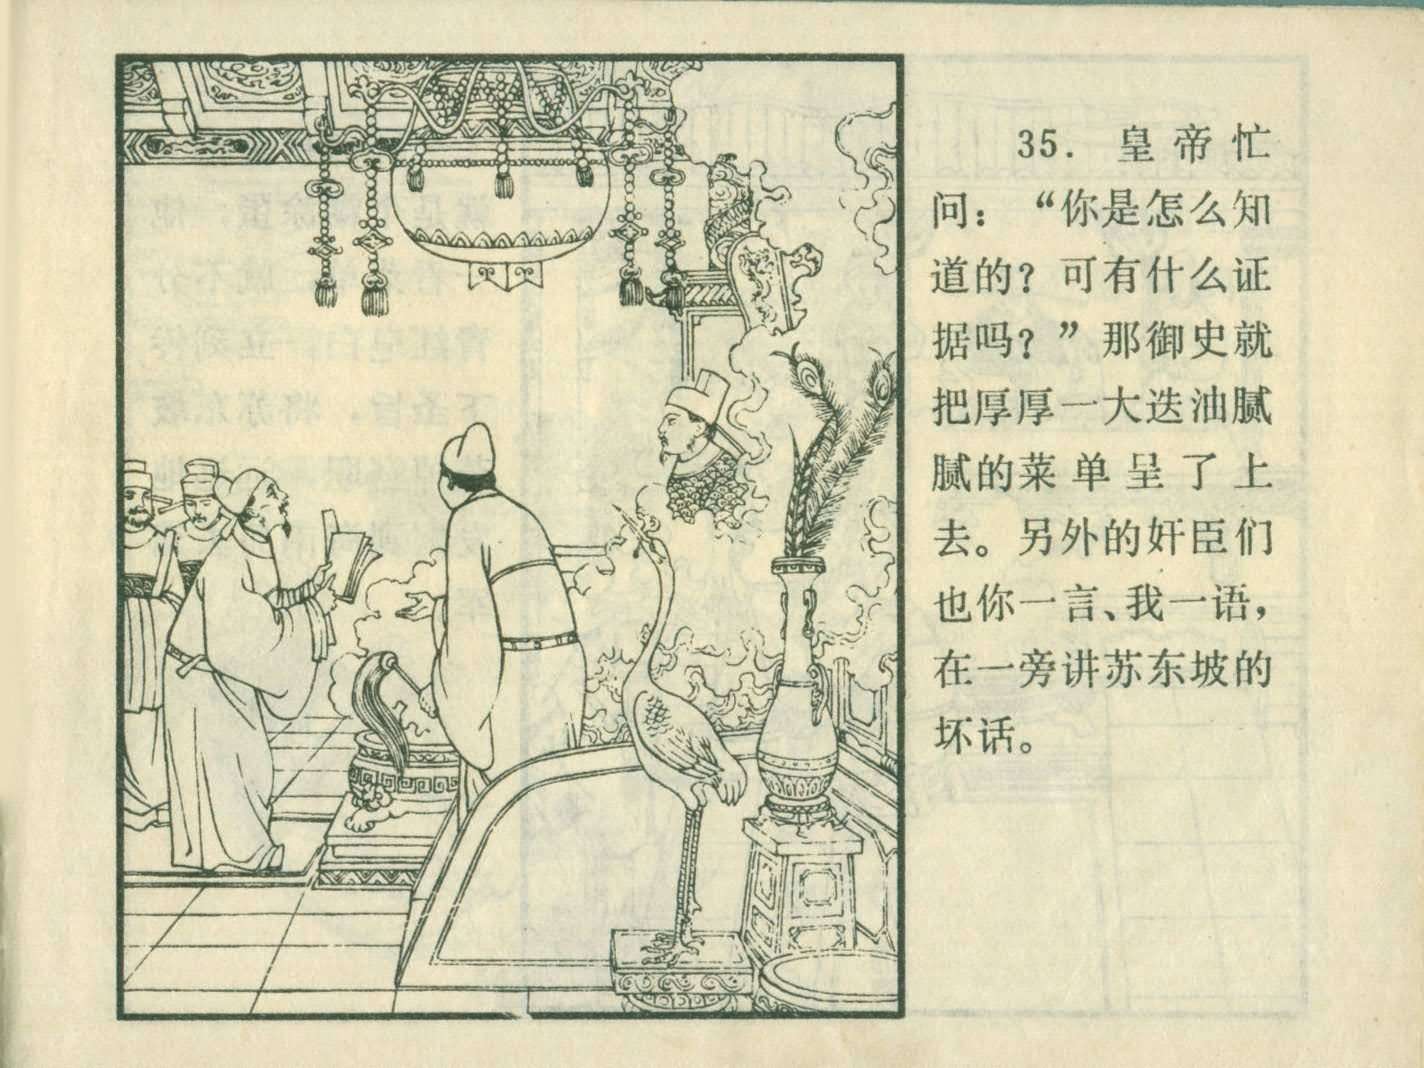 35. 皇帝忙
问：“你是怎么知
道的？可有什么证
据吗？”那御史就
把厚厚一大迭油腻
腻的菜单呈了上
去。另外的奸臣们
也你一言、我一语，
在一旁讲苏东坡的
坏话。